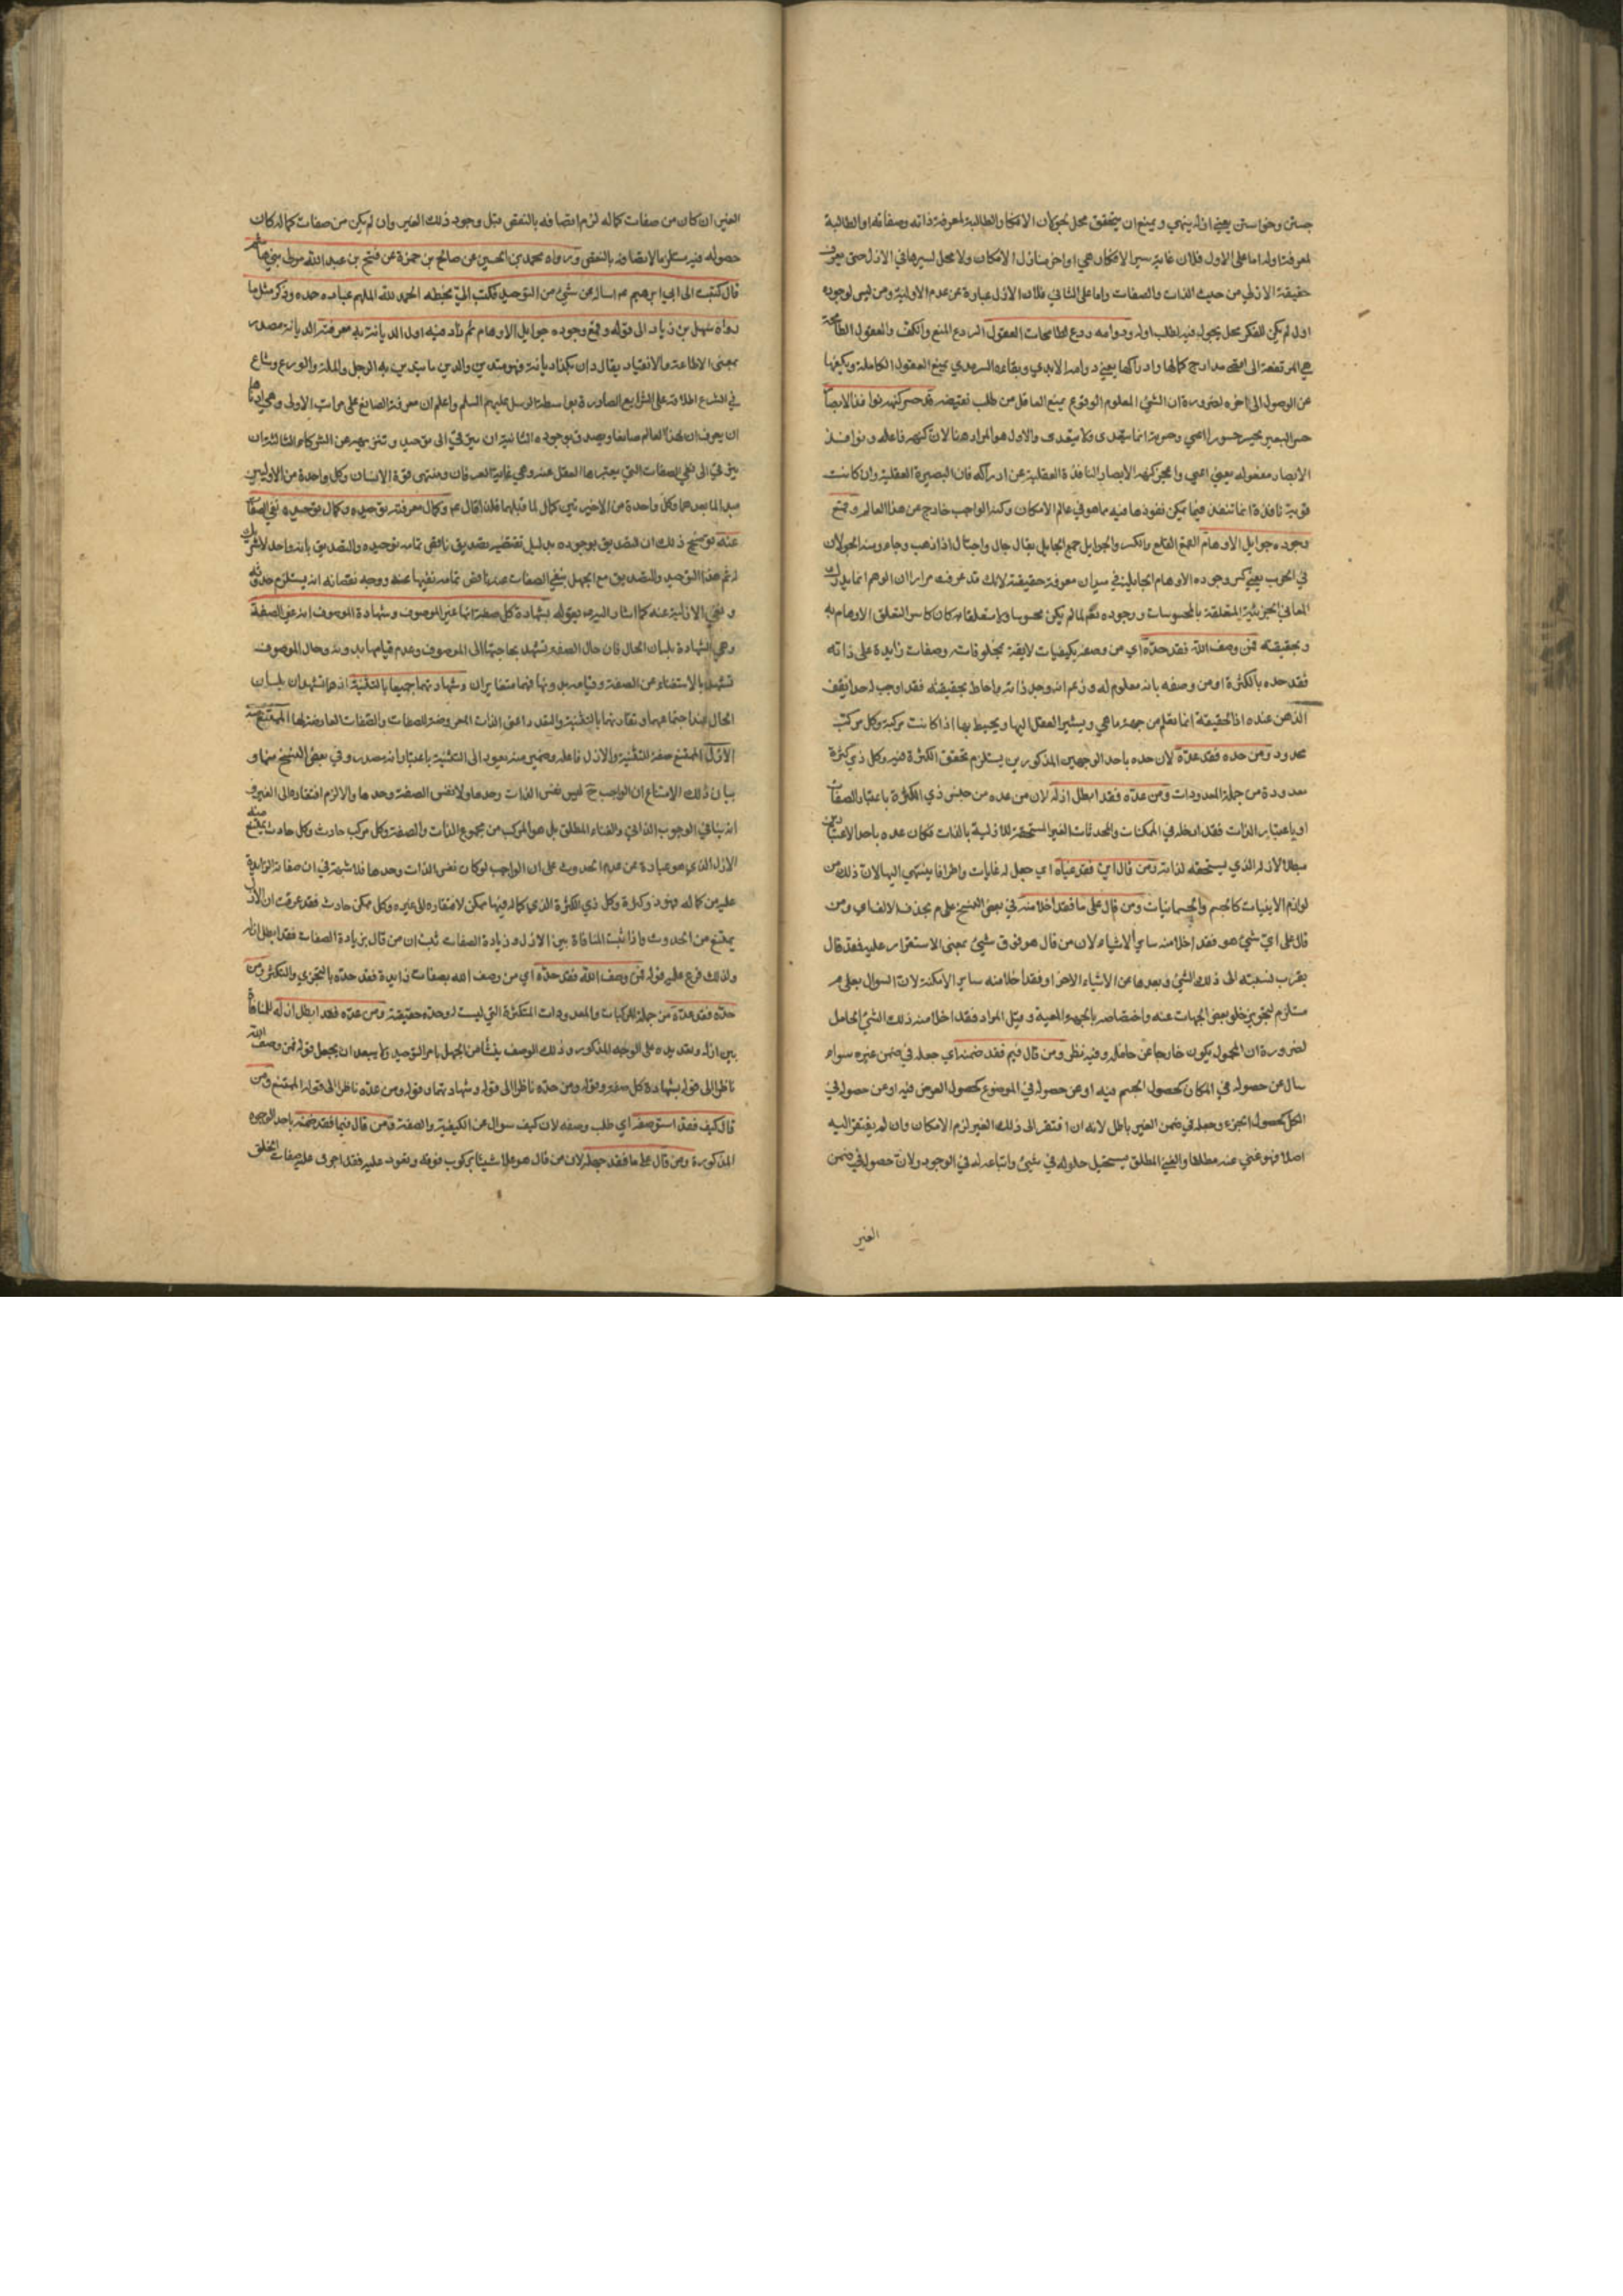 جستن وخواستن يعني ازله ينهي ويمنع ان يتحقق محل لجولان الافكار الطالبة لمعرفة ذاته وصفاته او الطالبة
لمعرفة اوله اما على الاول فلان غاية سير الافكار هي اواخر منازل الامكان ولا محل لسيرها في الازل حتى يعرف
حقيقة الازلي من حيث الذات والصفات واما على الثاني فلان الازل عبارة عن عدم الاولية ومن ليس لوجوده
اول لم يكن للفكر محل يجول فيه لطلب اوله ودوامه ردع لطامحات العقول الردع المنع والكف والعقول الطامحة
هي المرتفعة الى اقصى مدارج كمالها وادراكها يعني دوامه الابدي وبقاءه السرمدي يمنع العقول الكاملة ويكفها
عن الوصول الى اخره لضرورة ان الشيء المعلوم الوقوع يمنع العاقل من طلب نقيضه قد حسر كنهه نوافذ الابصار
حسر البصير يحسر حسورا اعيى وحسرته انا يتعدى ولا يتعدى والاول هو المراد هنا لان كنهه فاعله ونوافذ
الابصار مفعوله يعني اعيى واعجز كنهه الابصار النافذة العقلية عن ادراكه فان البصيرة العقلية وان كانت
قوية نافذة انما تنفذ فيما يمكن نفوذها فيه مما هو في عالم الامكان وكنه الواجب خارج عن هذا العالم وقمع
وجوده جوايل الاوهام القمع القلع والكسر والجوايل جمع الجايل يقال جال واجتال اذا ذهب وجاء ومنه الجولان
في الحرب يعني كسر وجوده الاوهام الجايلة في ميدان معرفة حقيقته لانك قد عرفت مرارا ان الوهم انما يدرك
المعاني الجزئية المتعلقة بالمحسوسات ووجوده تعالى لما لم يكن محسوسا ولا متعلقا به كان كاسرا لتعلق الاوهام به
وبحقيقته فمن وصف الله فقد حده اي من وصفه بكيفيات لايقة بمخلوقاته وصفات زايدة على ذاته
فقد حده بالكثرة او من وصفه بانه معلوم له وزعم انه وجد ذاته واحاط بحقيقته فقد اوجب له حدا يقف
الذهن عنده اذ الحقيقة انما تعلم من جهة ما هي ويشير العقل اليها ويحيط بها اذا كانت مركبة وكل مركب
محدود ومن حده فقد عده لان حده باحد الوجهين المذكورين يستلزم تحقق الكثرة فيه وكل ذي كثرة
معدودة من جملة المعدودات ومن عده فقد ابطل ازله لان من عده من جنس ذي الكثرة باعتبار الصفات
او باعتبار الذات فقد ادخله في الممكنات والمحدثات الغير المستحقة للازلية بالذات فكان عده باحد الاعتبارين
مبطلا لازله الذي يستحقه لذاته ومن قال اين فقد غياه اي جعل له غايات واطرافا ينتهي اليها لان ذلك من
لوازم الاينيات كالجسم والجسمانيات ومن قال على ما فقد اخلا منه في بعض النسخ على م بحذف الالف اي ومن
قال على اي شيء هو فقد اخلا منه ساير الاشياء لان من قال هو فوق شيء بمعنى الاستقرار عليه فقد قال
بقرب نسبته الى ذلك الشيء وبعدها عن الاشياء الاخر او فقد اخلا منه ساير الامكنة لان السوال بعلى م
مستلزم لتجويز خلو بعض الجهات عنه واختصاصه بالجهة المعينة وقيل المراد فقد اخلا منه ذلك الشيء الحامل
لضرورة ان المحمول يكون خارجا عن حامله وفيه نظر ومن قال فيم فقد ضمنه اي جعله في ضمن غيره سواء
سال عن حصوله في المكان كحصول الجسم فيه او عن حصوله في الموضوع كحصول العرض فيه او عن حصوله في
الكل كحصول الجزء وجعله في ضمن الغير باطل لانه ان افتقر الى ذلك الغير لزم الامكان وان لم يفتقر اليه
اصلا فهو غني عنه مطلقا والغني المطلق يستحيل حلوله في شيء واتباعه له في الوجود ولان حصوله في ضمن
الغير
الغير ان كان من صفات كماله لزم اتصافه بالنقص قبل وجود ذلك الغير وان لم يكن من صفات كماله كان
حصوله فيه مستلزما لاتصافه بالنقص ورواه محمد بن الحسين عن صالح بن حمزة عن فتح بن عبد الله مولى بني هاشم
قال كتبت الى ابي ابرهيم عم اساله عن شيء من التوحيد فكتب الي بخطه الحمد لله الملهم عباده حمده وذكر مثل ما
رواه سهل بن زياد الى قوله وقمع وجوده جوايل الاوهام ثم زاد فيه اول الديانة به معرفته الديانة مصدر
بمعنى الاطاعة والانقياد يقال دان بكذا ديانة فهو متدين والدين ما يتدين به الرجل والملة والورع وشاع
في الشرع اطلاقه على الشرايع الصادرة بواسطة الرسل عليهم السلم واعلم ان معرفة الصانع على مراتب الاولى وهي ادناها
ان يعرف ان لهذا العالم صانعا ويصدق بوجوده الثانية ان يترقى الى توحيده وتنزيهه عن الشركاء الثالثة ان
يترقى الى نفي الصفات التي يعتبرها العقل عنه وهي غاية العرفان ومنتهى قوة الانسان وكل واحدة من الاوليين
مبدا لما بعدهما وكل واحدة من الاخيرتين كمال لما قبلها فلذا قال عم وكمال معرفته توحيده وكمال توحيده نفي الصفات
عنه توضيح ذلك ان التصديق بوجوده بدليل تقتضيه تصديق ناقص تمامه توحيده والتصديق بانه واحد لا شريك
له ثم هذا التوحيد والتصديق مع الجهل بنفي الصفات عنه ناقص تمامه نفيها عنه ووجه نقصانه انه يستلزم حدوثه
ونفي الازلية عنه كما اشار اليه بقوله بشهادة كل صفة انها غير الموصوف وشهادة الموصوف انه غير الصفة
وهي الشهادة بلسان الحال فان حال الصفة تشهد بحاجتها الى الموصوف وعدم قيامها بدونه وحال الموصوف
تشهد بالاستغناء عن الصفة وقيامه بدونها فهما متغايران وشهادتهما جميعا بالتثنية اذ هما تشهدان بلسان
الحال عند اجتماعهما وتقارنهما بالتثنية والتعدد اعني الذات المعروضة للصفات والصفات العارضة لها الممتنع منه
الازل الممتنع صفة للتثنية والازل فاعله وضمير منه يعود الى التثنية باعتبار انه مصدر وفي بعض النسخ منها و
بيان ذلك الامتناع ان الواجب ح ليس نفس الذات وحدها ولا نفس الصفة وحدها والا لزم افتقاره الى الغير و
انه ينافي الوجوب الذاتي والغناء المطلق بل هو المركب من مجموع الذات والصفة وكل مركب حادث وكل حادث يمتنع منه
الازل الذي هو عبارة عن عدم الحدوث على ان الواجب لو كان نفس الذات وحدها فلا شبهة في ان صفاته الزايدة
عليه من كماله فهو ذو كثرة وكل ذي الكثرة الذي كماله فيها ممكن لافتقاره الى غيره وكل ممكن حادث فقد عرفت ان الازل
يمتنع من الحدوث واذا ثبت المنافاة بين الازل وزيادة الصفات ثبت ان من قال بزيادة الصفات فقد ابطل ازله
ولذلك فرع عليه قوله فمن وصف الله فقد حده اي من وصف الله بصفات زايدة فقد حده بالتجزي والتكثر ومن
حده فقد عده من جملة المركبات والمعدودات المتكثرة التي ليست له وحدة حقيقة ومن عده فقد ابطل ازله للمنافاة
بين ازله وتعديده على الوجه المذكور وذلك الوصف ينشأ من الجهل بامر التوحيد ولا يبعد ان يجعل قوله فمن وصف الله
ناظرا الى قوله بشهادة كل صفة وقوله ومن حده ناظرا الى قوله وشهادتهما وقوله ومن عده ناظرا الى قوله الممتنع ومن
قال كيف فقد استوصفه اي طلب وصفه لان كيف سوال عن الكيفية والصفة ومن قال فيما فقد ضمنه باحد الوجوه
المذكورة ومن قال على ما فقد جهله لان من قال هو على شيئا بركوب فوقه وقعود عليه فقد اجرى عليه صفات الخلق